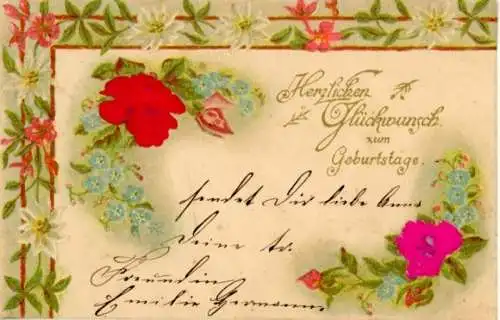 Herzlichen
Glückwunsch
zum
Geburtstage.
sendet Dir liebe Anna
Deine tr.
Freundin
Emilie